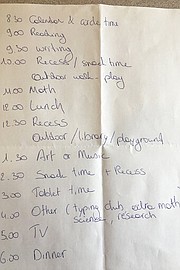 8 30 Calendar & circle time
9 00 Reading
9 30 Writing
10.00 Recess / snack time
Outdoor walk - play
11.00 Math
12.00 Lunch
12.30 Recess
Outdoor / library / playground
1.30 Art or Music
2.30 Snack time + Recess
3.00 Tablet time
4.00 Other (typing club, extra math
science, research
5.00 TV
6.00 Dinner